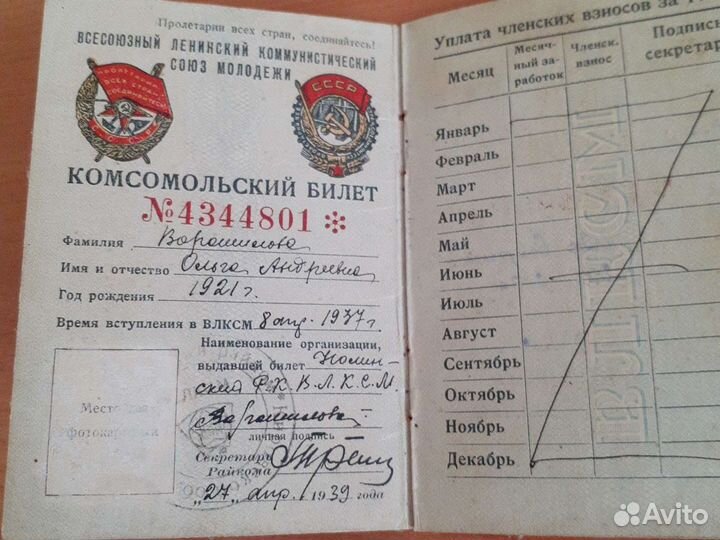 Пролетарии всех стран, соединяйтесь!
ВСЕСОЮЗНЫЙ ЛЕНИНСКИЙ КОММУНИСТИЧЕСКИЙ
СОЮЗ МОЛОДЕЖИ
ПРОЛЕТАРИИ
ВСЕХ СТРАН
СОЕДИНЯЙТЕСЬ
СССР
СССР
КОМСОМОЛЬСКИЙ БИЛЕТ
№4344801 *
Фамилия Ворошилова
Имя и отчество Ольга Андреевна
Год рождения 1921 г.
Время вступления в ВЛКСМ 8 апр. 1937 г
Наименование организации,
выдавшей билет Нолин-
ский Р.К.В.Л.К.С.М.
Место для
фотокарточки
Ворошилова
личная подпись
Секретарь
Райкома
"27" апр. 1939 года
Уплата членских взносов за
Месяц
Месяч-
ный за-
работок
Членск.
взнос
Подпись
секретар
Январь
Февраль
Март
Апрель
Май
Июнь
Июль
Август
Сентябрь
Октябрь
Ноябрь
Декабрь
ВЛКСМ
Avito